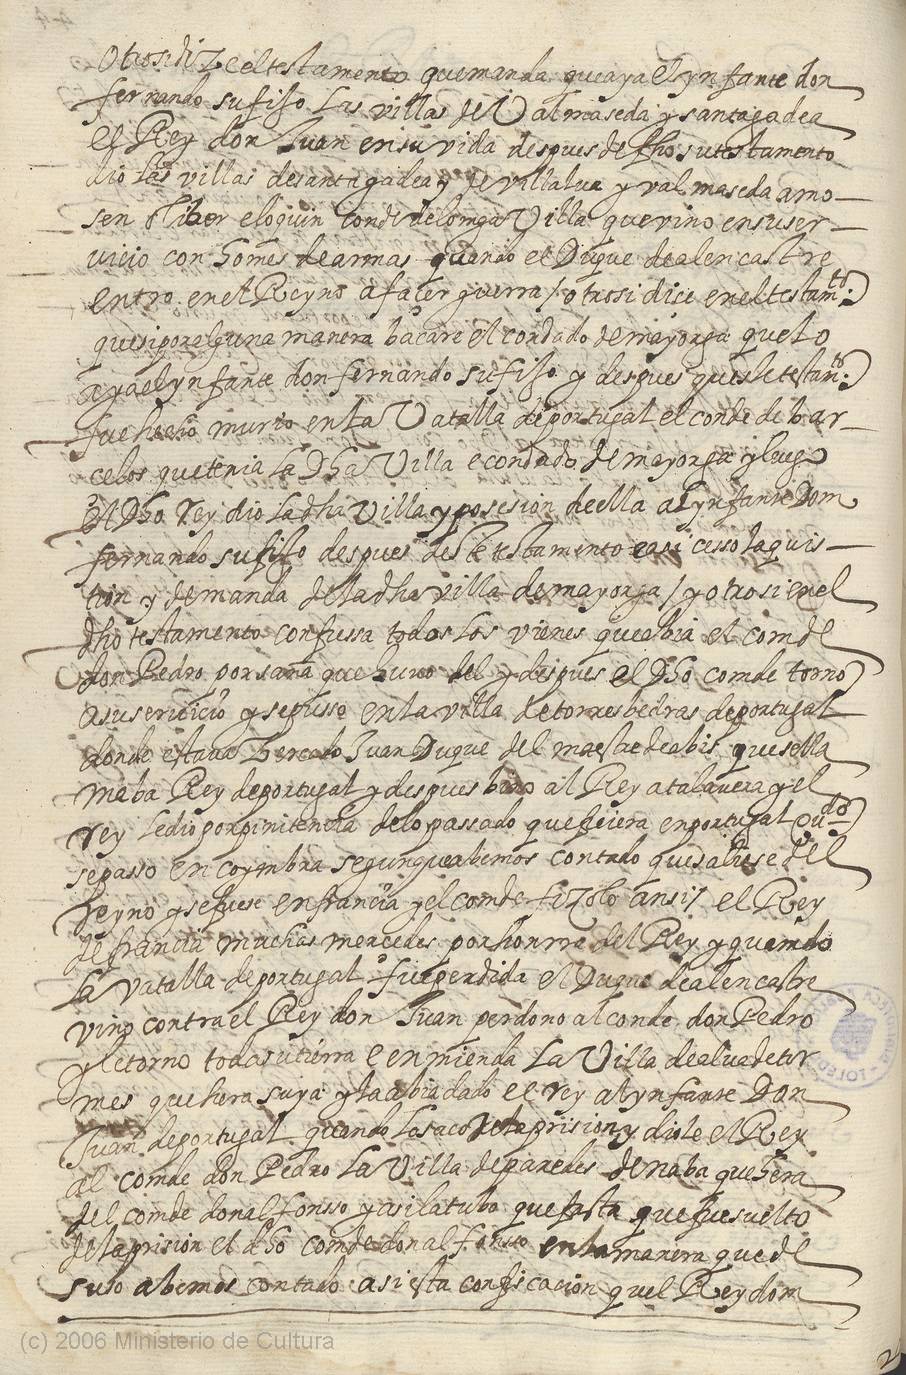 Otrosi dize el testamento que manda que aya el ynfante don
fernando su fijo las villas de Valmaseda y santagadea
el Rey don Juan en su vida despues de dho su testamento
dio las villas de santagadea y de villalua y valmaseda a mo—
sen oliber conde de longa Villa que vino en su ser—
uicio con homes de armas quando el Duque de alencastre
entro en el Reyno a facer guerra / otrossi dice en el testamto.
que si por alguna manera bacare el condado de mayorga que lo
aya el ynfante don fernando su fijo y despues queste testamto.
fue hecho murio en la Vatalla de portugal el conde de bar—
celos que tenia la Dha Villa e condado de mayorga y luego
el Dho Rey dio la dha Villa y posesion de ella al ynfante Dom
fernando su fijo despues deste testamento e asi cesso la quis—
tion y demanda de la dha villa de mayorga / y otrosi en el
dho testamento confussa todos los vienes que abia el comde
don Pedro por saña que huuo del y despues el Dho comde torno
a su seruicio y se pusso en la villa de torres bedras de portugal
donde estaua cercado Juan Duque del maestre de abis que se lla
maba Rey de portugal y despues bino al Rey a talauera y el
rey le dio por pinitencia de lo passado que ficiera en portugal
se passo en coymbra segun que abemos contado que saliese del
Reyno y se fuese en francia y el comde hizolo ansi / el Rey
de francia muchas mercedes por honrra del Rey y quando
la vatalla de portugal fue perdida el Duque de alencastre
vino contra el Rey don Juan perdono al conde don Pedro
y le torno toda su tierra e enmienda la Villa de alua de tor
mes que hera suya y la abia dado el rey al ynfante Don
Juan de portugal quando lo saco de la prision y diole el Rey
al comde don Pedro la Villa de paredes de naba que hera
del comde don alfonsso y asi la tubo que fasta que fue suelto
de la prision el dho comde don alfonsso en la manera que de
suso abemos contado asi esta confiscacion quel Rey dom
(c) 2006 Ministerio de Cultura